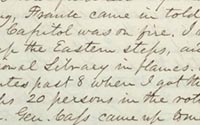 Frank came in told
Capitol was on fire. I
up the Eastern steps, and
onal Library in flames.
utes past 8 when I got th
ps 20 persons in the rot
Gen Cass came up